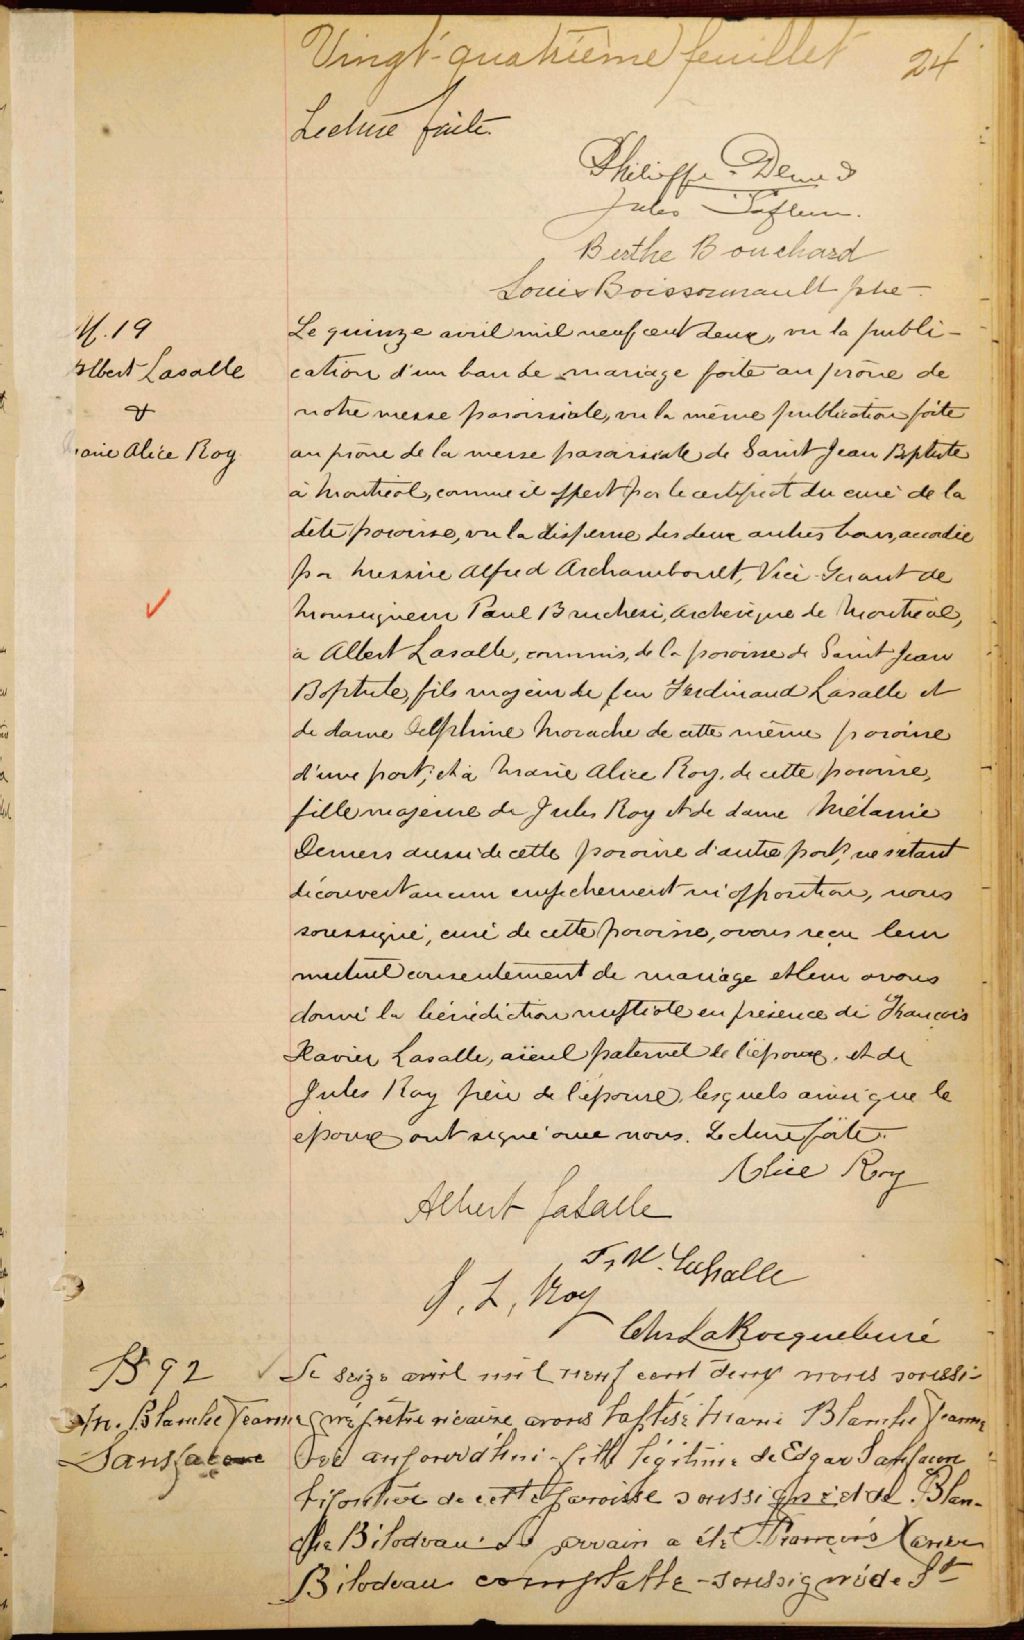 Vingt-quatrième feuillet 24
Lecture faite.
Philippe Demers
Jules Lafleur.
Berthe Bouchard
Louis Boissonnault ptre
M. 19
Albert Lasalle
&
Marie Alice Roy
Le quinze avril mil neuf cent deux, vu la publi-
cation d'un ban de mariage faite au prône de
notre messe paroissiale, vu la même publication faite
au prône de la messe paroissiale de Saint Jean Bptiste
à Montréal, comme il appert par le certificat du curé de la
dite paroisse, vu la dispense des deux autres bans, accordée
par Messire Alfred Archambault, Vice-Gérant de
Monseigneur Paul Bruchesi, archevêque de Montréal,
à Albert Lasalle, commis, de la paroisse de Saint Jean
Baptiste, fils majeur de feu Ferdinand Lasalle et
de dame Delphine Morache de cette même paroisse
d'une part; et à Marie Alice Roy, de cette paroisse,
fille majeure de Jules Roy et de dame Mélanie
Demers aussi de cette paroisse d'autre part; ne s'étant
découvert aucun empêchement ni opposition, nous
soussigné, curé de cette paroisse, avons reçu leur
mutuel consentement de mariage et leur avons
donné la bénédiction nuptiale en présence de François
Xavier Lasalle, aïeul paternel de l'époux, et de
Jules Roy père de l'épouse, lesquels ainsi que le
époux ont signé avec nous. Lecture faite.
Alice Roy
Albert LaSalle
F. X. LaSalle
J. L. Roy
Chs LaRocque curé
B 92
M. Blanche Jeanne
Sansfacon
Le seize avril mil neuf cent deux nous soussi-
gné prêtre vicaire avons baptisé Marie Blanche Jeanne
née aujourd'hui fille légitime de Edgar Sanfacon
bijoutier de cette paroisse soussigné et de Blan-
che Bilodeau. Le parrain a été François Xavier
Bilodeau comptable soussigné de St